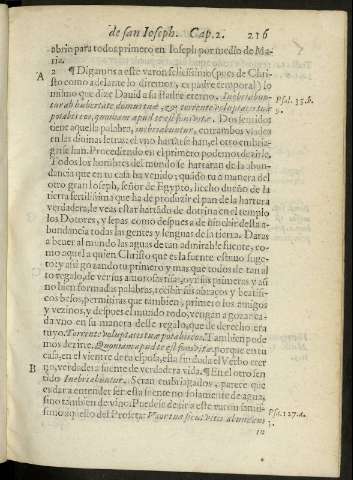 de san Ioseph. Cap. 2. 216
abrio para todos primero en Ioseph por medio de Maria.
A 2 ¶ Digamos a este varon felicissimo (pues de Chri-
sto como adelante lo diremos, es padre temporal) lo
mismo que dize Dauid a su Padre eterno. Inebriabun-
tur ab hubertate domus tuæ, & torrente voluptatis tuæ Psal. 35. b.
potabis eos, quoniam apud te est fons vitæ. Dos sentidos 9.
tiene aquella palabra, inebriabuntur, entrambos viades
en las diuinas letras: el vno hartarse han, el otro embria-
garse han. Procediendo en el primero podemos dezirle.
Todos los hombres del mundo se hartaran de la abun-
dancia que en tu casa ha venido; quãdo tu a manera del
otro gran Ioseph, señor de Egypto, hecho dueño de la
tierra fertilissima que ha de produzir el pan de la hartura
verdadera, le veas estar hartãdo de dotrina en el templo
los Dotores, y sepas como despues a de hinchir desta a-
bundancia todas las gentes y lenguas de la tierra. Daras
a beuer al mundo las aguas de tan admirable fuente, co-
mo aquel a quien Christo que es la fuente estuuo suge-
to: y assi gozando tu primero y mas que todos de tan al
to regalo, de sus versos amorosissimos, oyr sus primeras y assi
no bien formadas palabras, recibir sus abraços y beatifi-
cos besos, permitiras que tambien, primero los amigos
y vezinos, y despues el mundo todo, vengan a gozar ca-
da vno en su manera desse regalo, que de derecho era
tuyo. Torrente voluptatis tuæ potabis eos. Tambien pode
mos dezirte. Quoniam apud te est fons vitæ. porque en tu
casa, en el vientre de tu esposa, està fundada el Verbo eter
B no, verdadera fuente de verdadera vida. ¶ En el otro sen
tido Inebriabuntur. Seran embriagados, parece que
es dar a entender ser esta fuente no solamente de agua,
sino tambien de vino. Puedese dezir a este varon santis-
simo aquello del Profeta: Vxor tua sicut vitis abundans Psa. 127. a.
3.
in